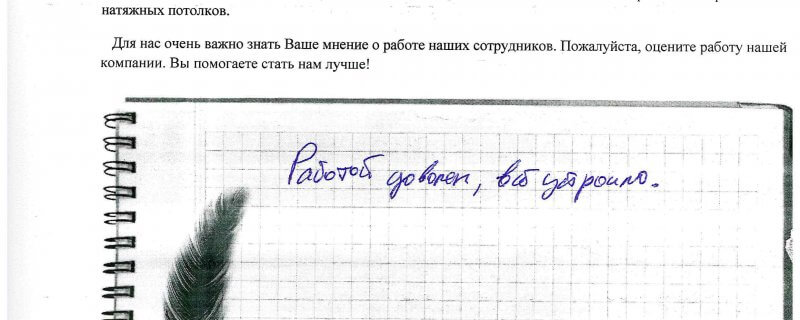 натяжных потолков.
Для нас очень важно знать Ваше мнение о работе наших сотрудников. Пожалуйста, оцените работу нашей
компании. Вы помогаете стать нам лучше!
Работой доволен, всё устроило.